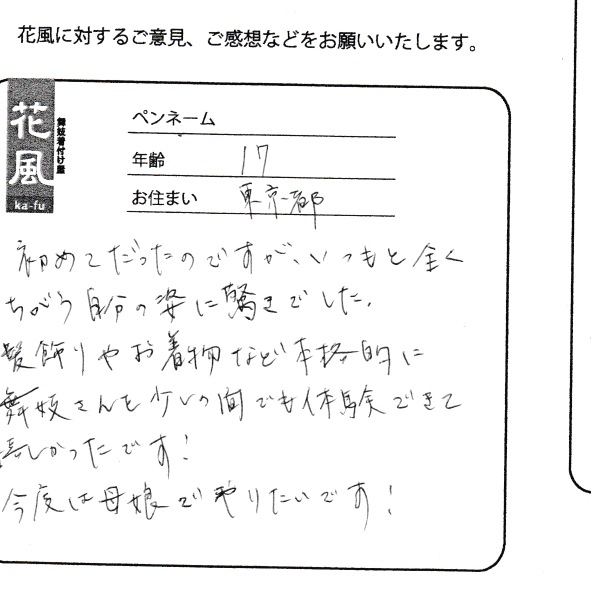 花風に対するご意見、ご感想などをお願いいたします。
花風
舞妓着付け屋
ka-fu
ペンネーム
年齢 17
お住まい 東京都
初めてだったのですが、いつもと全く
ちがう自分の姿に驚きでした。
髪飾りやお着物など本格的に
舞妓さんを少しの間でも体験できて
嬉しかったです!
今度は母娘でやりたいです!